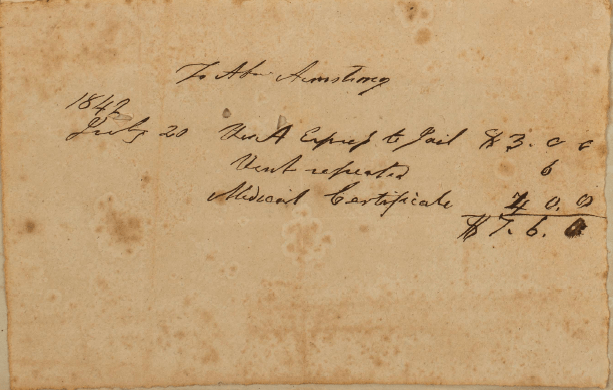 To Abm Armstrong
1842
July 20 Express to Jail $ 3. 0 0
Vent repeated 6
Medical Certificate 4 0. 0
$ 7. 6. 0